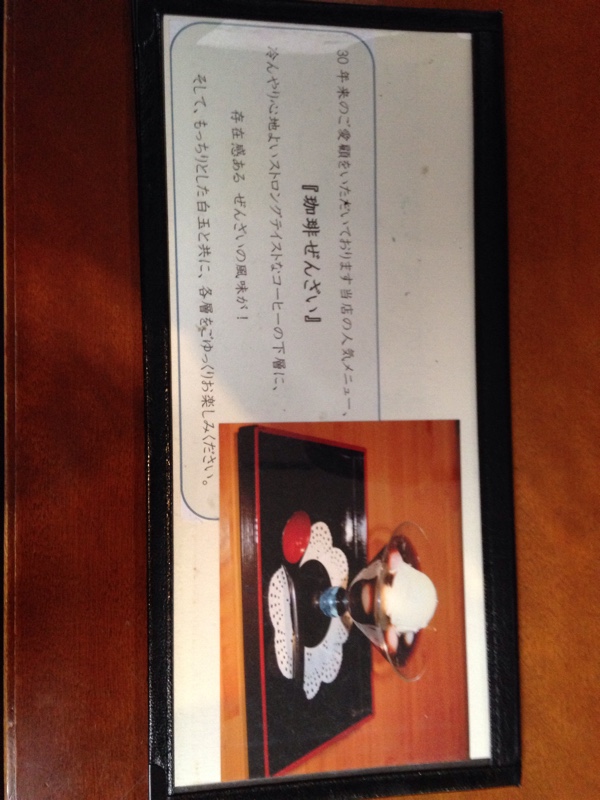 30年来のご愛顧をいただいております当店の人気メニュー、
『珈琲ぜんざい』
冷んやり心地よいストロングテイストなコーヒーの下層に、
存在感ある ぜんざいの風味が！
そして、もっちりとした白玉と共に、各層をごゆっくりお楽しみください。